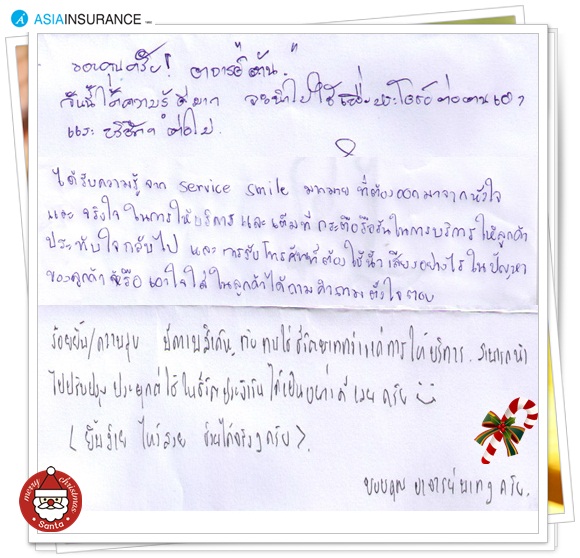 ASIAINSURANCE 1950
ขอบคุณครับ! อาจารย์ "ต้น"
วันนี้ได้ความรู้ดีมาก จะนำไปใช้เพื่อประโยชน์ต่อตนเอง
และ บริษัทฯ ต่อไป.
ได้รับความรู้ จาก service smile มากมาย ที่ต้องออกมาจากหัวใจ
และ จริงใจ ในการให้บริการ และเต็มที่ กระตือรือร้นในการบริการ ให้ลูกค้า
ประทับใจกลับไป และ การรับโทรศัพท์ต้อง ใช้น้ำเสียงอย่างไร ในปัญหา
ของลูกค้า หรือ เอาใจใส่ ในลูกค้าได้ถามคำถาม ตั้งใจตอบ
รอยยิ้ม/ความสุข การให้บริการ
ไปปรับปรุง ประยุกต์ใช้ ในชีวิตประจำวัน ได้เป็นอย่างดี เลย ครับ
(ยิ้มง่าย ไหว้สวย ช่วยได้จริงๆ ครับ).
ขอบคุณ อาจารย์ ครับ.
merry christmas
Santa